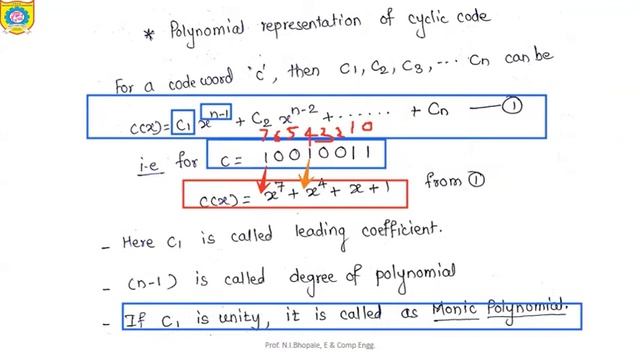 * Polynomial representation of cyclic code
For a code word 'c', then C1, C2, C3, ... Cn can be
C(x) = C1 x^n-1 + C2 x^n-2 + ....... + Cn — ①
7 6 5 4 3 2 1 0
i.e for C = 10010011
C(x) = x^7 + x^4 + x + 1 from ①
- Here C1 is called leading coefficient.
- (n-1) is called degree of polynomial
- If C1 is unity, it is called as Monic Polynomial.
Prof. N.I.Bhopale, E & Comp Engg.